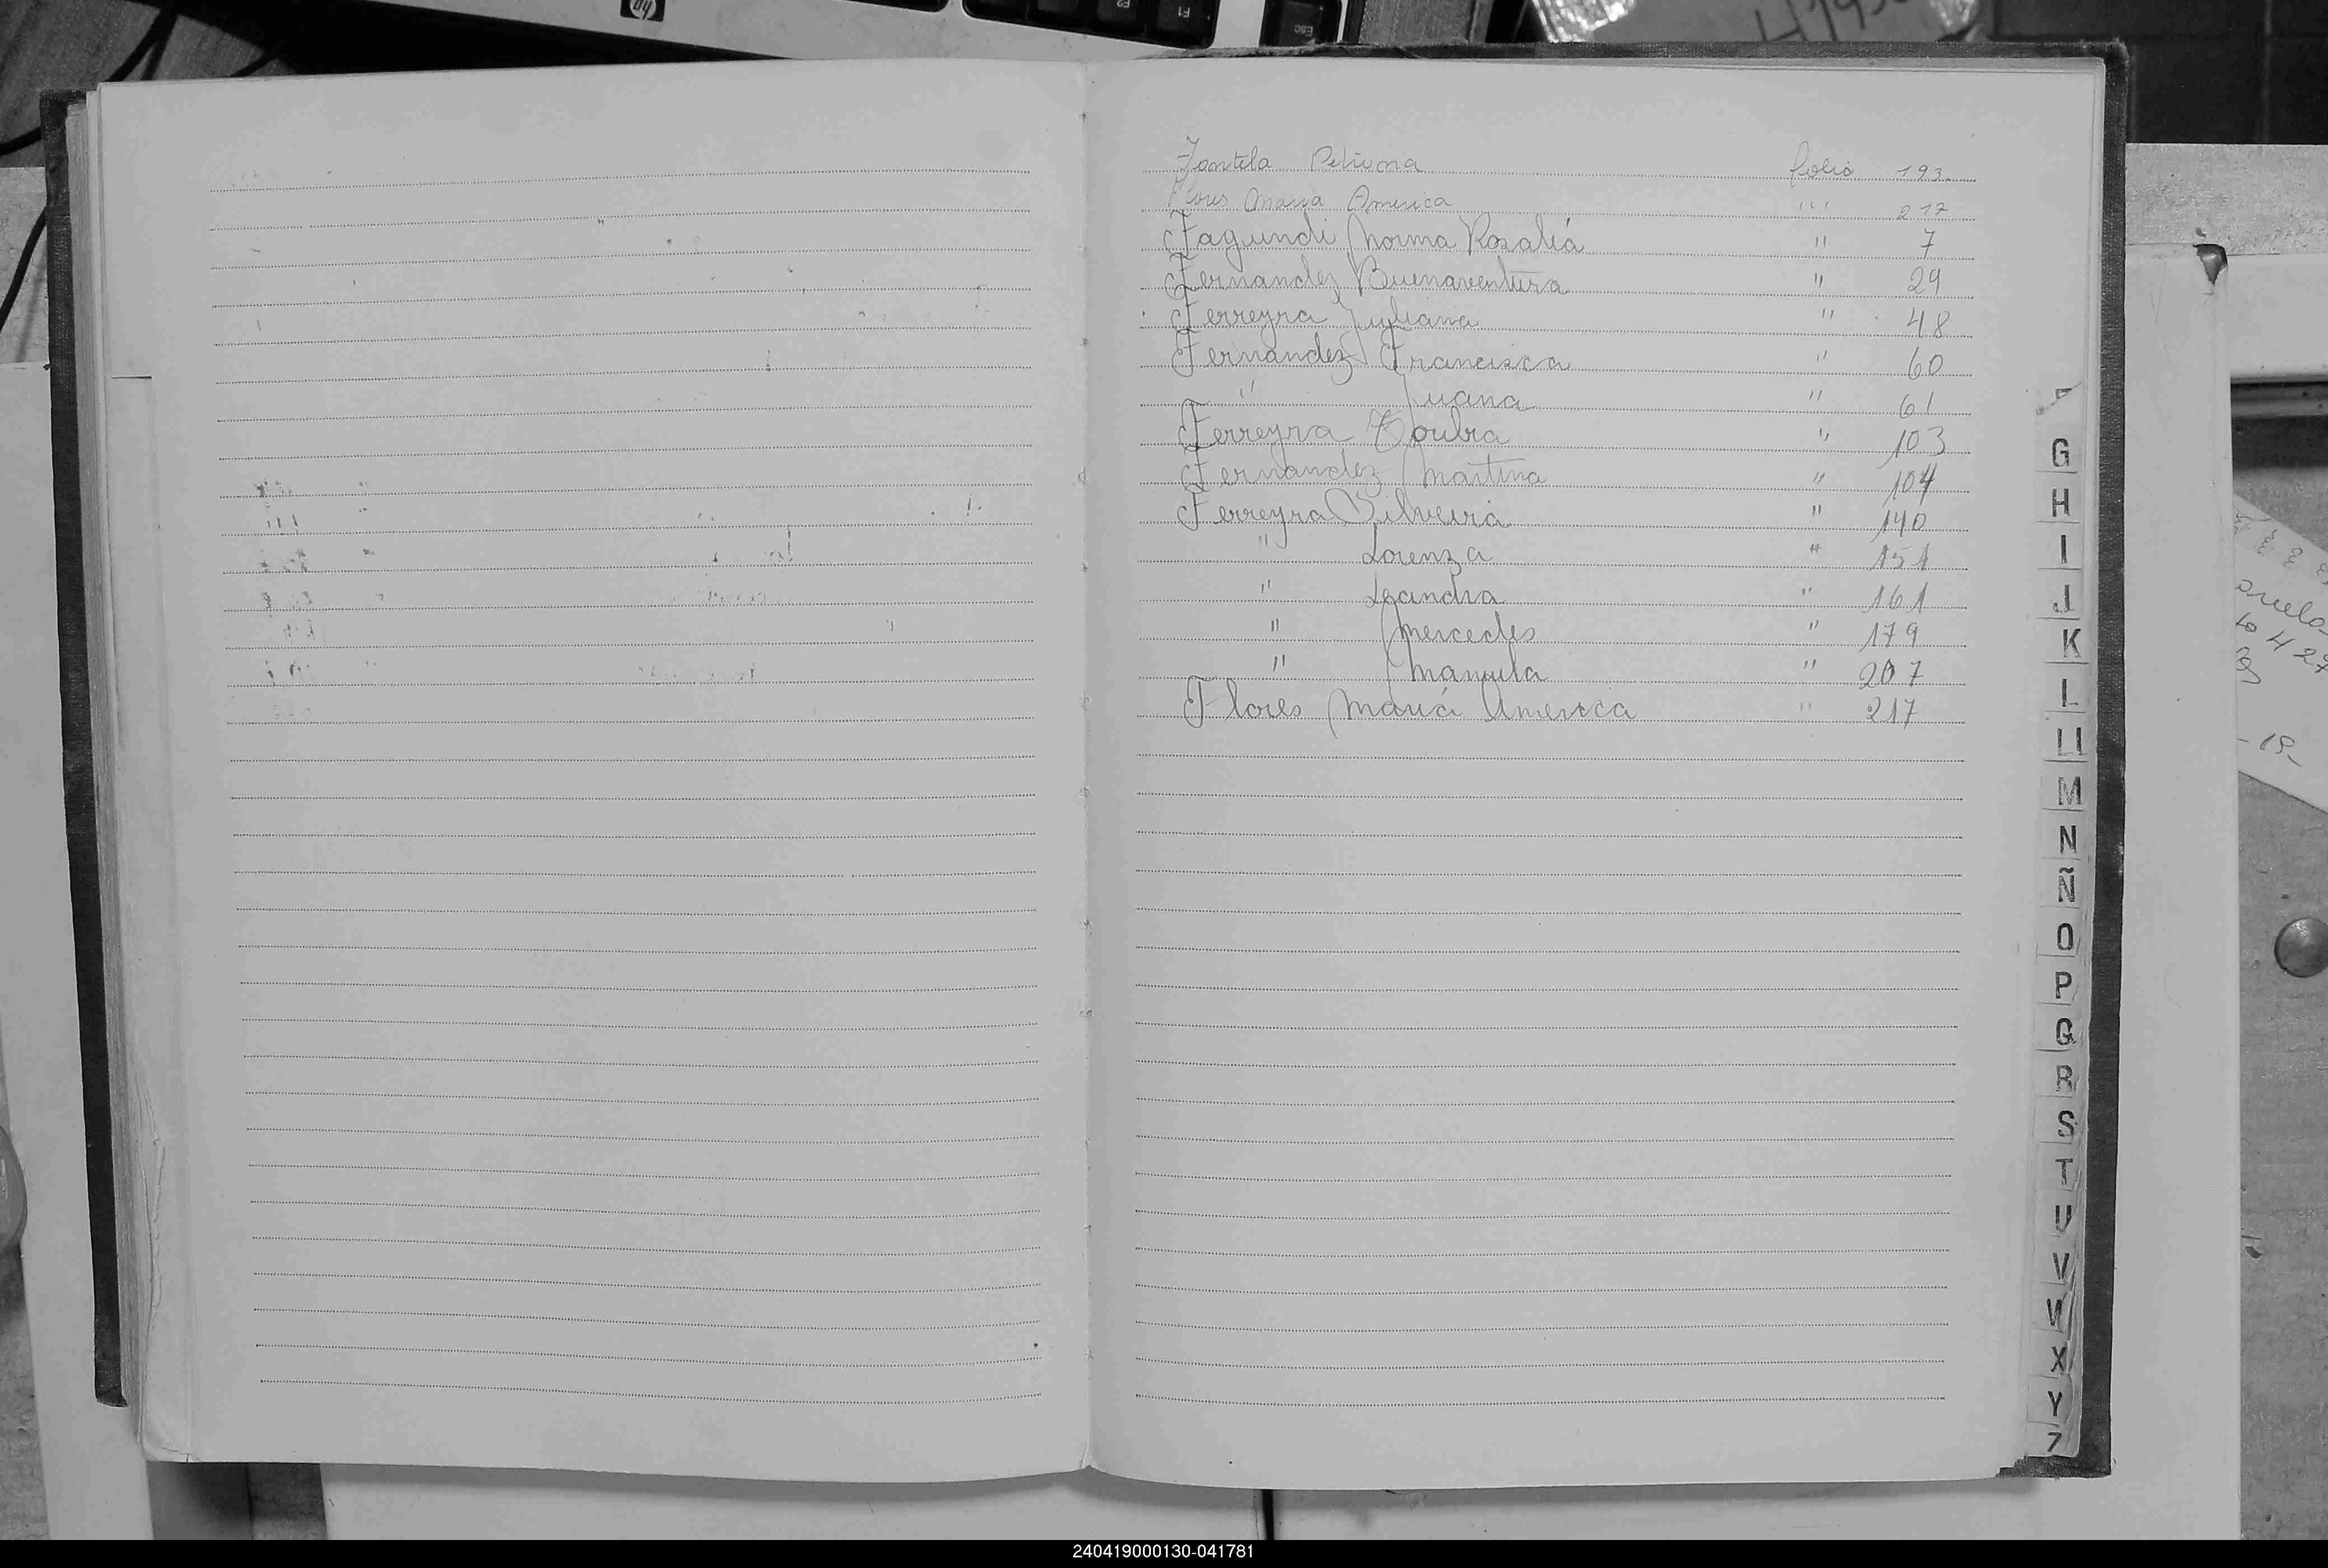 Fontela Petrona folio 193
Flores Maria America " 217
Fagundi Norma Rosalia " 7
Fernandez Buenaventura " 29
Ferreyra Juliana " 48
Fernandez Francisca " 60
" Juana " 61
Ferreyra " 103
Fernandez Martina " 104
Ferreyra Silveira " 140
" Lorenza " 151
" Leandra " 161
" Mercedes " 179
" Manuela " 207
Flores Maria America " 217
F
G
H
I
J
K
L
LL
M
N
Ñ
O
P
Q
R
S
T
U
V
W
X
Y
Z
hp
F2
F1
ESC
240419000130-041781